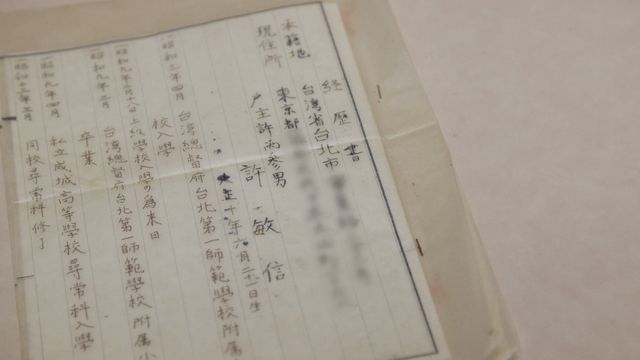 経歴書
本籍地 台湾省台北市
現住所 東京都
戸主許丙参男
許敏信
大正十年六月二十一日生
昭和三年四月 台湾總督府台北第一師範學校附属
校入學
昭和九年三月六日上級學校入學の為来日
昭和九年三月 台湾總督府台北第一師範學校附属小
卒業
昭和九年四月 私立成城高等學校尋常科入學
昭和十三年三月 同校尋常科修了